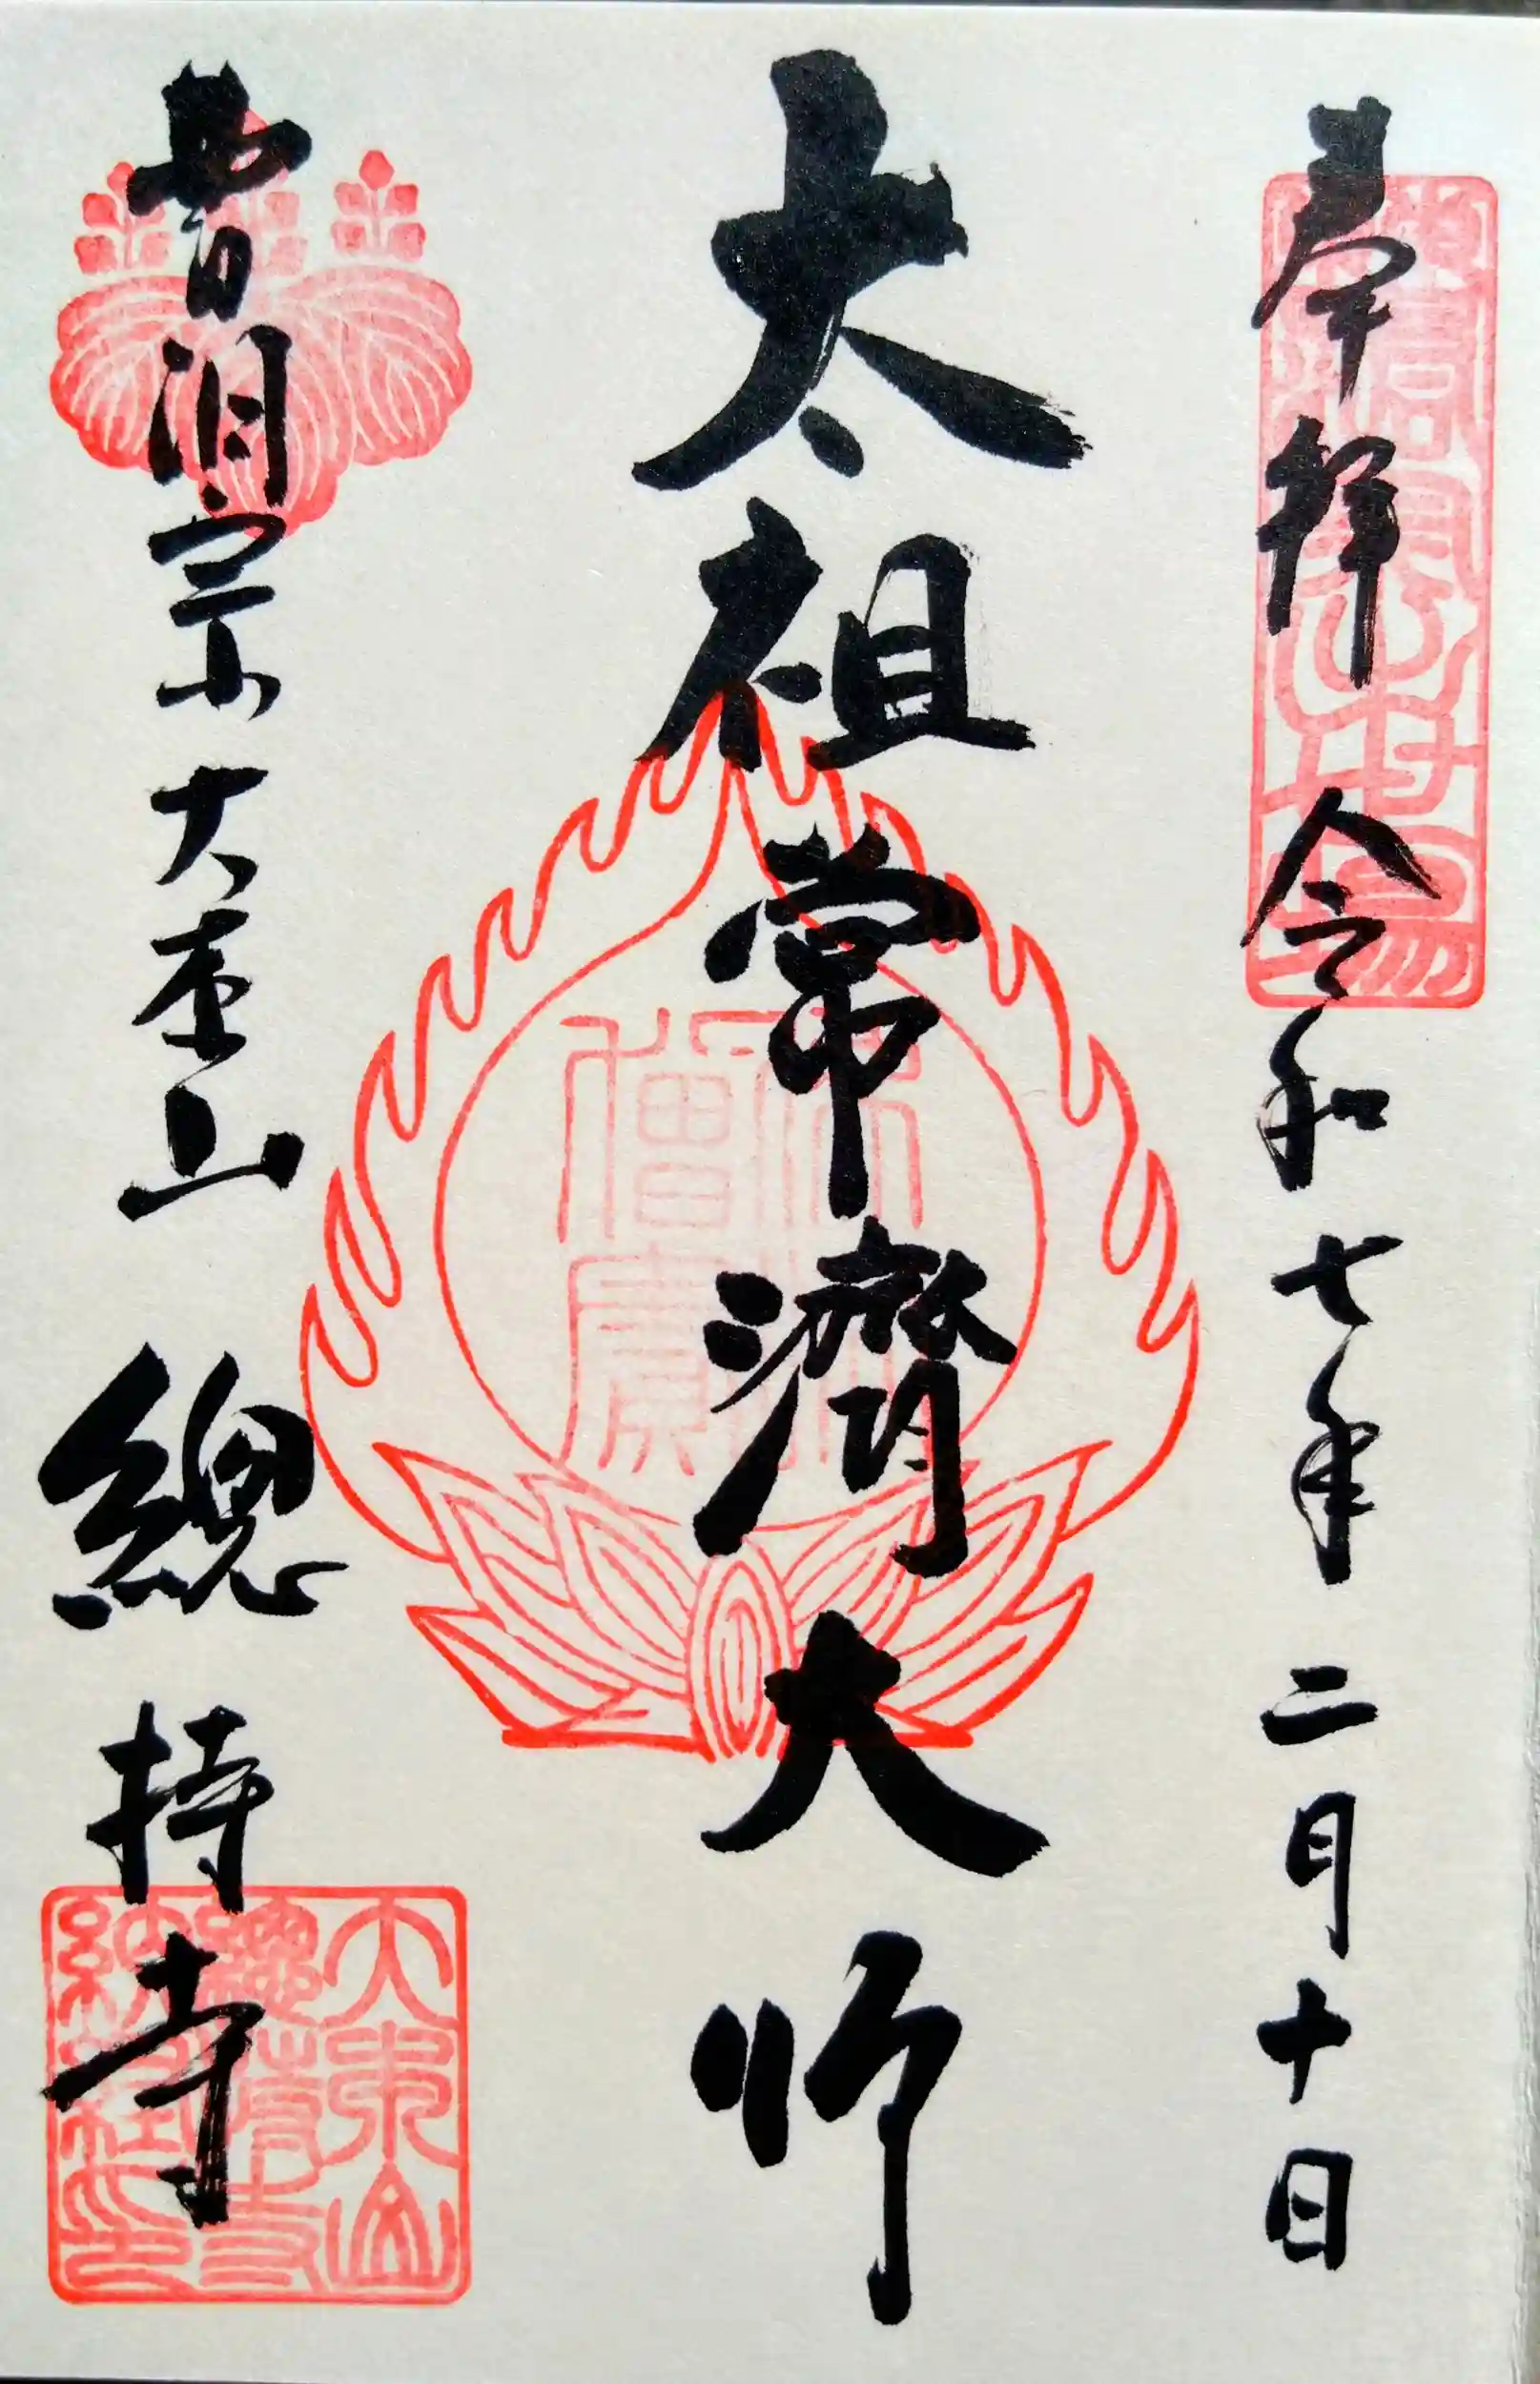 奉拝 令和七年二月十日
太祖常濟大師
曹洞宗大本山 總持寺
佛法僧寳